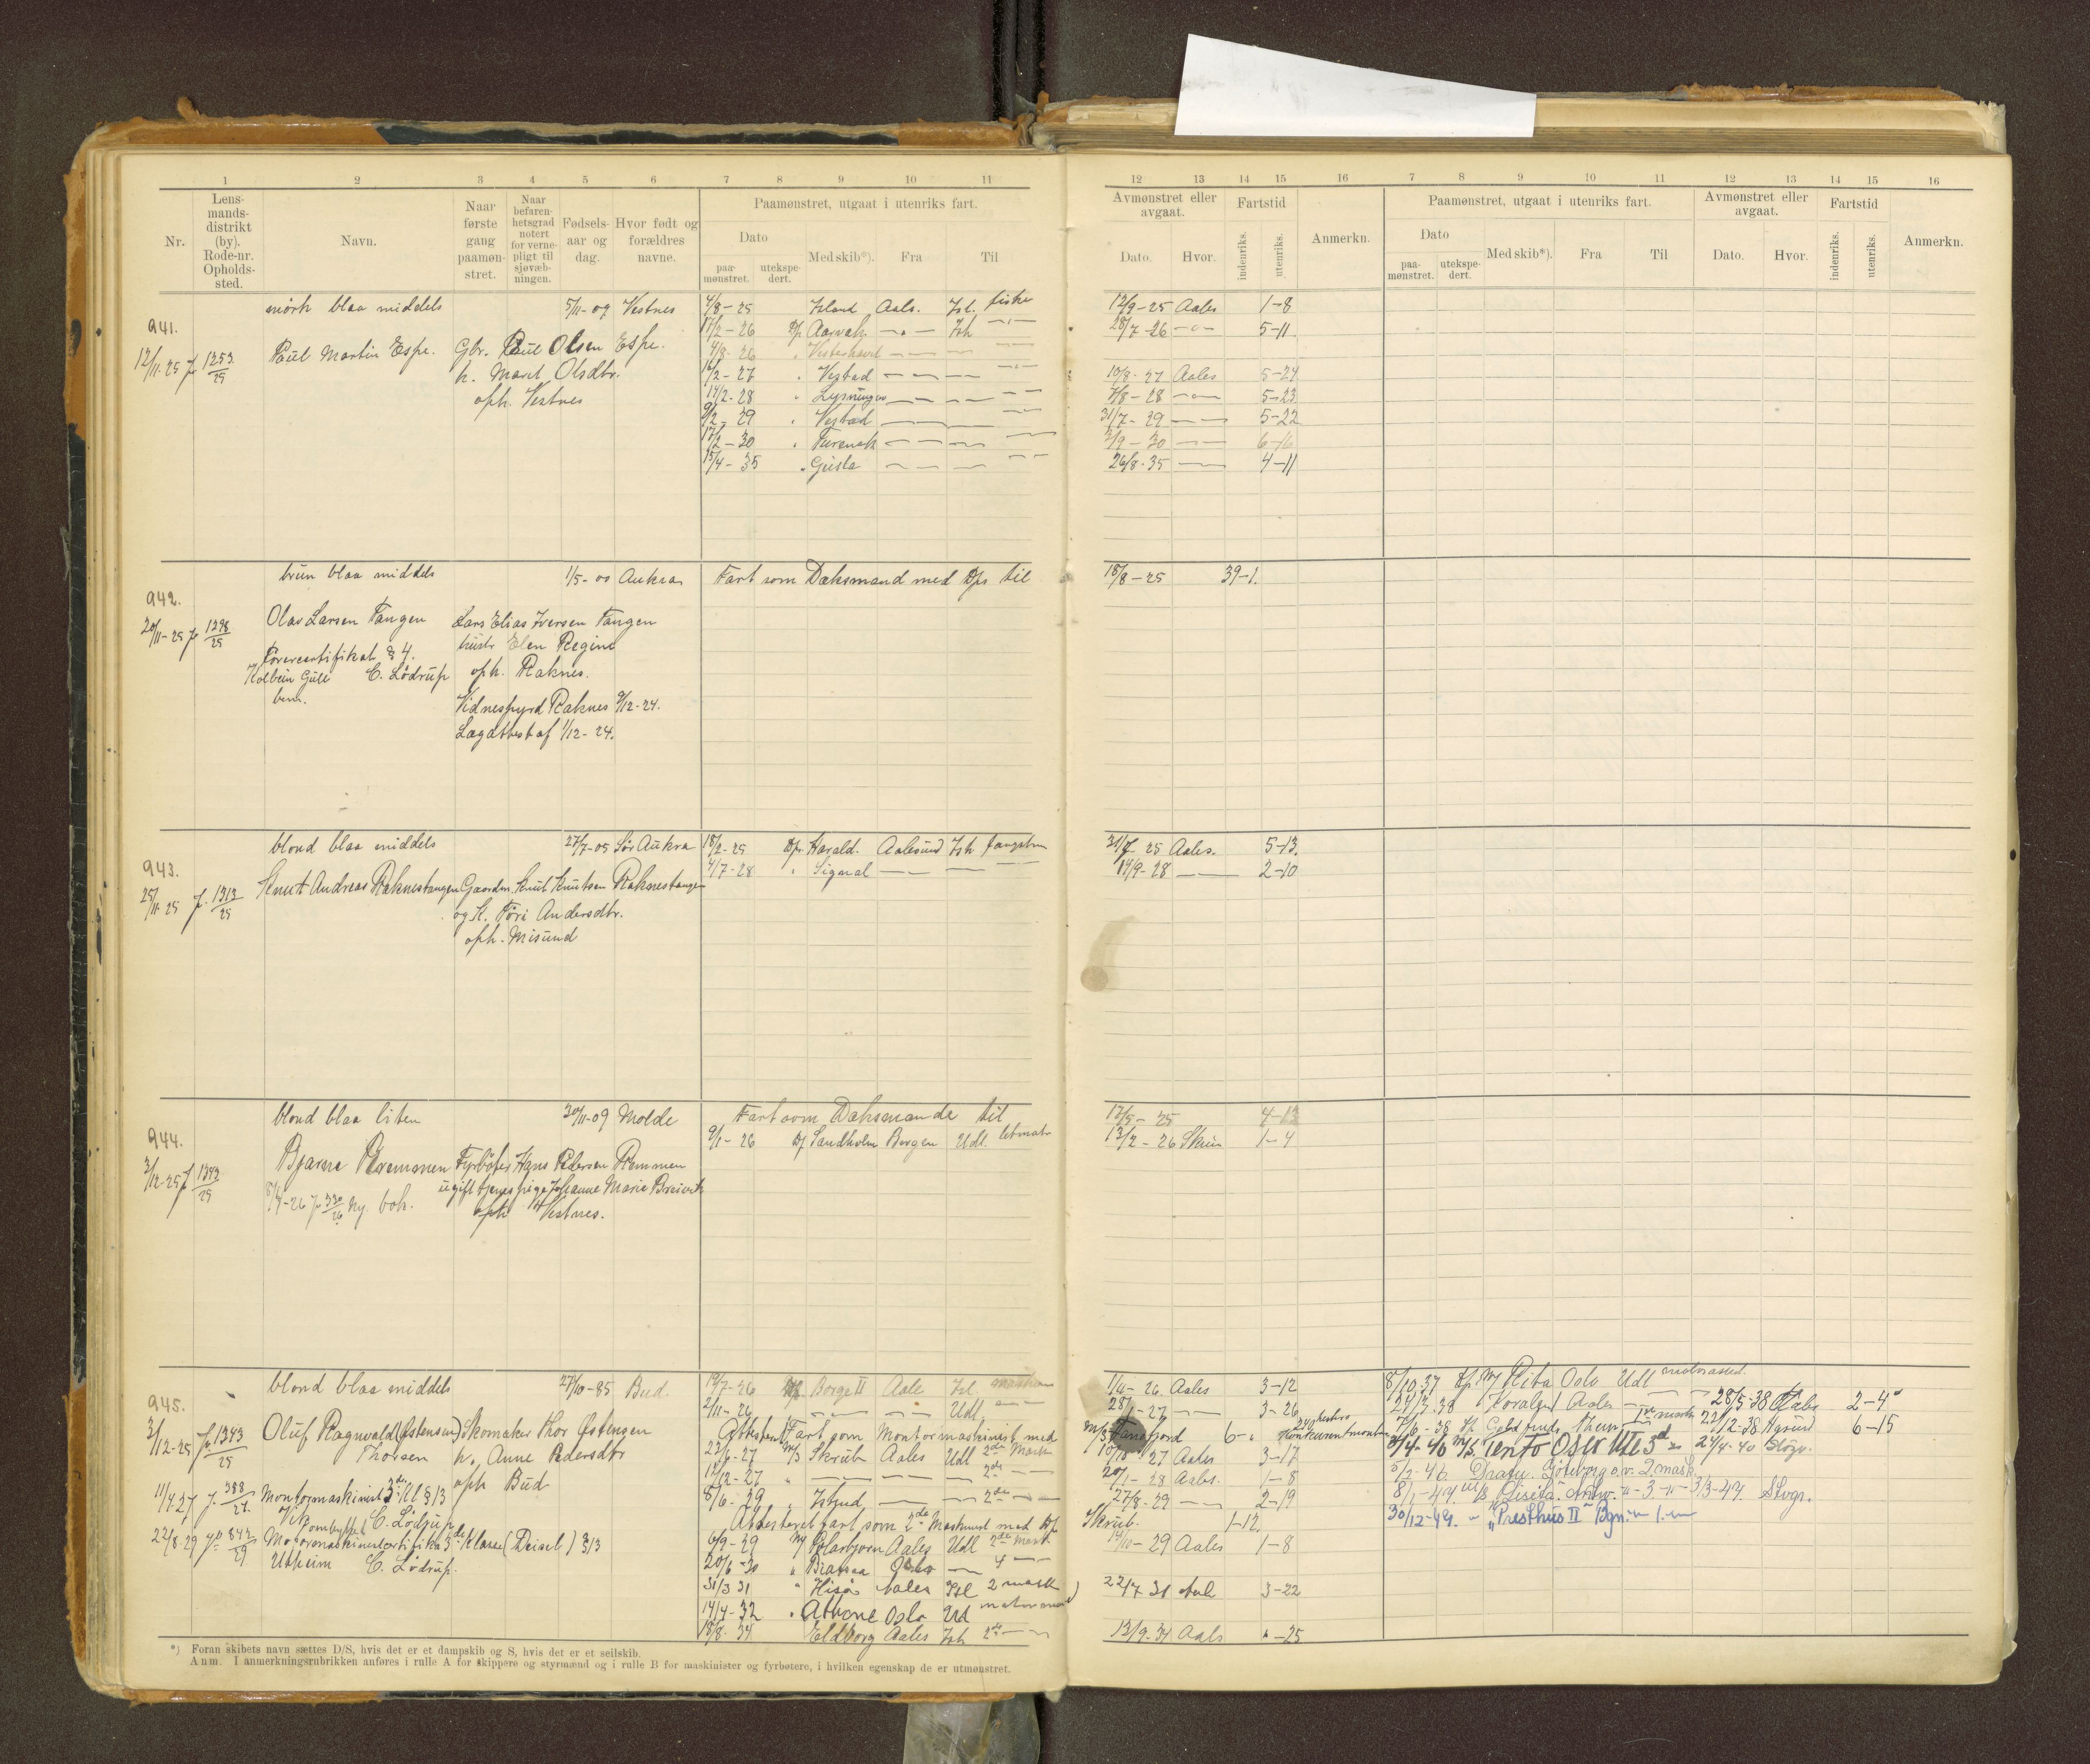 1 2 3 4 5 6 7 8 9 10 11
Nr. Lens-mands-distrikt (by). Rode-nr. Opholds-sted. Navn. Naar første gang paamøn-stret. Naar befaren-hetsgrad notert for verne-pligt til sjøvæb-ningen. Fødsels-aar og dag. Hvor født og forældres navne. Paamønstret, utgaat i utenriks fart.
Dato paa-mønstret. utekspe-dert. Med skib*). Fra Til
12 13 14 15 16 7 8 9 10 11 12 13 14 15 16
Avmønstret eller avgaat. Fartstid Anmerkn. Paamønstret, utgaat i utenriks fart. Avmønstret eller avgaat. Fartstid Anmerkn.
Dato. Hvor. indenriks. utenriks. Dato paa-mønstret. utekspe-dert. Med skib*). Fra Til Dato. Hvor. indenriks. utenriks.
941.
12/11-25 J 1253/25
mørk blaa middels 5/11-09 Vestnes
Paul Martin Espe. Gbr. Paul Olsen Espe.
h. Marit Olsdtr.
oph. Vestnes
4/8-25 Island Aales. Isl. fiske 12/9-25 Aales 1-8
17/2-26 D/s Aarvak Ish 28/7-26 5-11
4/8-26 Vesterhavet
16/2-27 Vestad 10/8-27 Aales 5-24
14/2-28 Lysningen 7/8-28 5-23
9/2-29 Vestad 31/7-29 5-22
17/2-30 Furenak 2/9-30 6-16
15/4-35 Gisla 26/8-35 4-11
942.
20/11-25 J 1298/25
brun blaa middels 1/5-00 Aukra Fart som Dæksmand med D/s til 18/8-25 39-1.
Olav Larsen Tangen Lars Elias Iversen Tangen
hustr Elen Regine
Førercertifikat § 4. oph. Raknes.
Kolbein Gule C. Lödrup
bem.
Vidnesfyrd Raknes 9/12-24.
Lægattest af 1/12-24.
943.
25/11-25 J. 1313/25
blond blaa middels 27/7-05 Sør Aukra 18/2-25 D/s Harald. Aalesund Ish fangstm 31/7 25 Aales. 5-13.
4/7-28 Signal 14/9-28 2-10
Knut Andreas Raknestangen Gaardm. Knut Knutsen Raknestangen
og H. Töri Andersdtr.
oph. Misund
944.
3/12-25 J 1343/25
blond blaa liten 30/11-09 Molde Fart som Dæksmande til 17/5-25 4-13
9/1-26 D/s Sandholm Bergen Udl. letmatr 13/2-26 Skien 1-4
Bjarne Remmen Fyrbøter Hans Pedersen Remmen
ugift tjenespige Johanne Marie Breivik
8/4-26 J 330/26 Ny bok. oph Vestnes.
945.
3/12-25 J 1343/25
blond blaa middels 27/10-85 Bud.
Oluf Ragnvald (Østensen) Skomaker Thor Østensen
Thorsen h. Anne Pedersdtr
oph Bud
11/4 27 J. 388/27 Montormaskinist 3de kl § 13
Vik ombyttet C. Lödrup
22/8-29 J 842/29 Motormaskinistcertifikat 3de klasse (Deisel) § 13
Utheim C. Lødrup.
19/7-26 M/s Borge II Aale Isl. 1/11-26 Aales 3-12
2/11-26 Udl. 28/1-27 3-26
Attestert Fart som Montormaskinist med M/s Tanafjord 6-
22/6-27 M/s Skrub Aales Udl 2de Mask 10/10 27 Aales 3-17
12/12-27 2de 20/1-28 Aales. 1-8
8/6-29 Isbjud 2de 27/8-29 2-19
Attesteret fart som 2de Maskinist med D/s Skrub. 1-12.
6/9-29 M/ Polarbjørn Aales Udl 2de mask 14/10-29 Aales 1-8
20/6-30 Oslo 4
31/3 31 Hisø Aales Isl 2 mask 22/7 31 Aale 3-22
14/4-32 Athene Oslo Ud
18/8-34 Eldborg Aales Ish 2de 12/9-34 Aals -25
8/10 37 Rita Oslo Udl motorassist.
Aales 28/5-38 Aales 2-4
22/12-38 6-15
Tento Oslo Ute 3d 24/4-40
5/2-46 Göteborg o.v. 2. mask
8/1-47 M/s Lisita. Antw. 3 3/3-47 Stvgr.
30/12-47. "Presthus II" Bgn. 1.
*) Foran skibets navn sættes D/S, hvis det er et dampskib og S, hvis det er et seilskib.
Anm. I anmerkningsrubrikken anføres i rulle A for skippere og styrmænd og i rulle B for maskinister og fyrbøtere, i hvilken egenskap de er utmønstret.